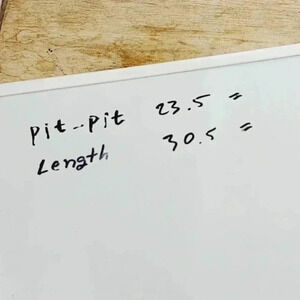 Pit-Pit 23.5 "
Length 30.5 "